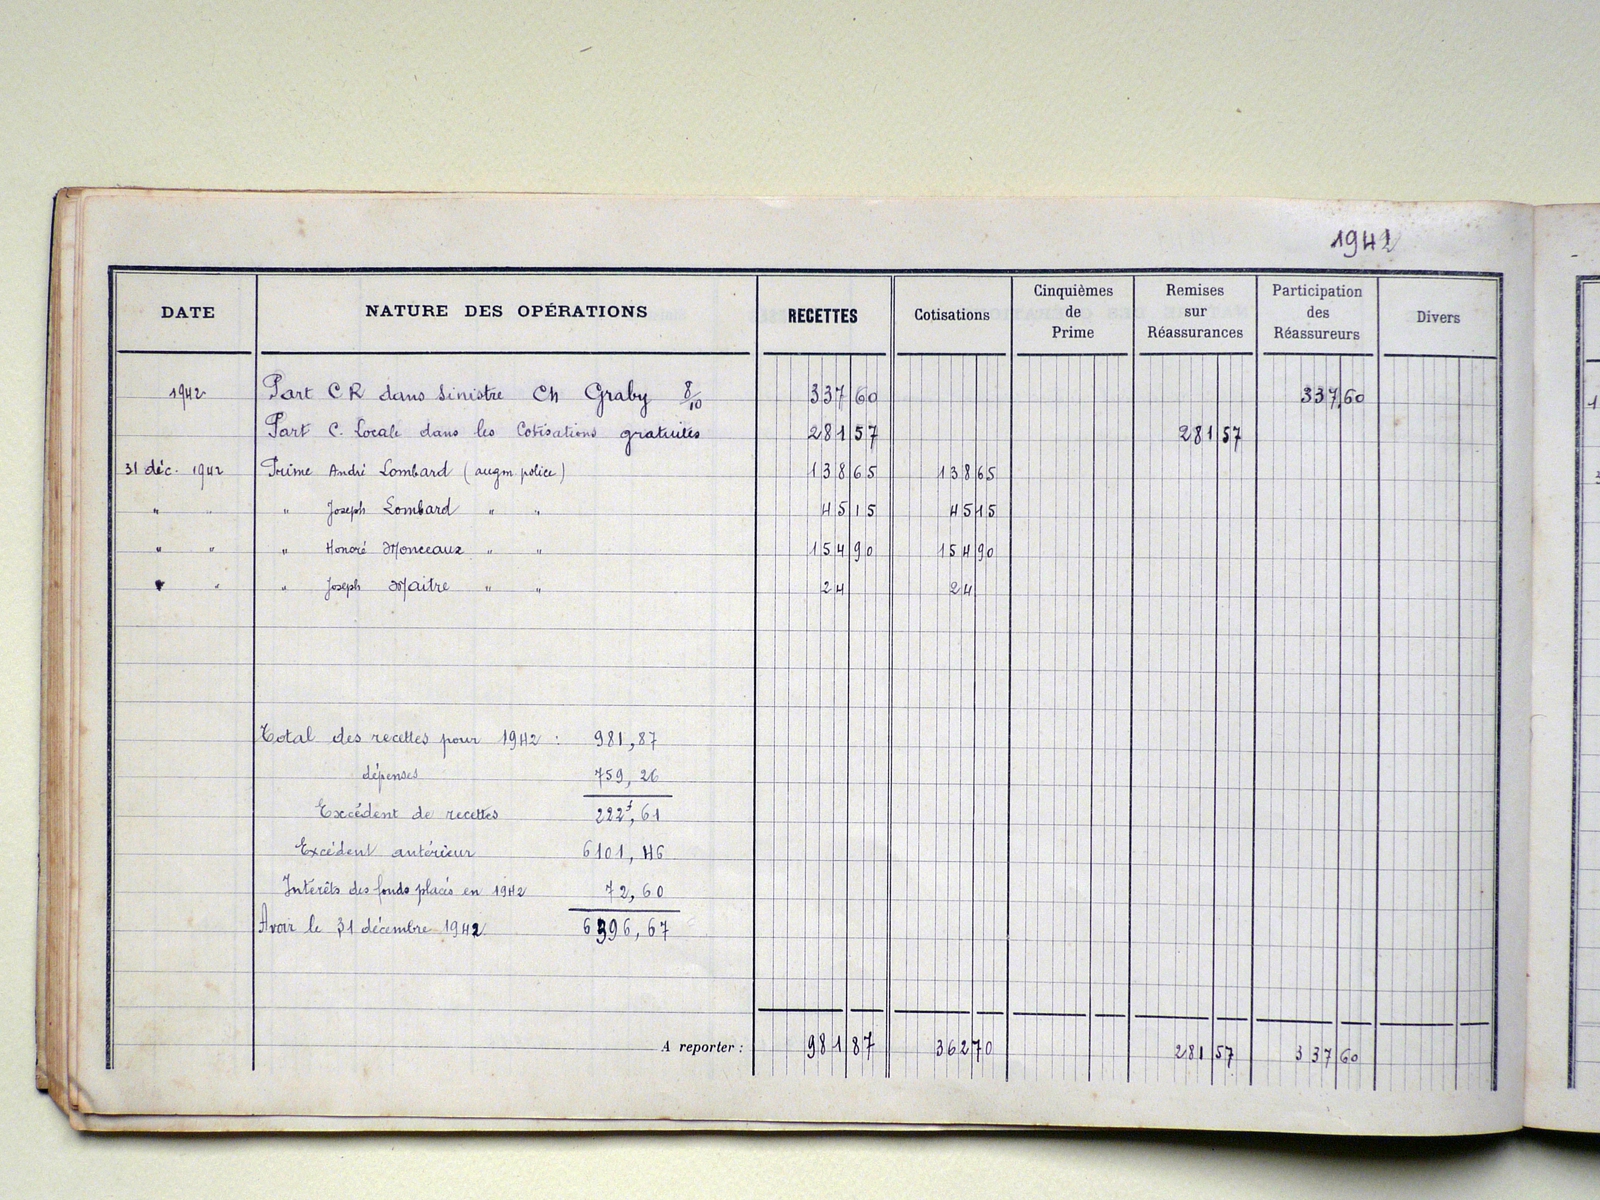 1942
DATE NATURE DES OPÉRATIONS RECETTES Cotisations Cinquièmes de Prime Remises sur Réassurances Participation des Réassureurs Divers
1942 Part C R dans sinistre Ch Graby 8/10 337 60 337,60
Part C. Locale dans les Cotisations gratuites 281 57 281 57
31 déc. 1942 Prime André Lombard (augm police) 138 65 138 65
" " " Joseph Lombard " " 45 15 45 15
" " " Honoré Monceaux " " 154 90 154 90
" " " Joseph Maitre " " 24 24
Total des recettes pour 1942 : 981,87
dépenses 759, 26
Excédent de recettes 222f, 61
Excédent antérieur 6101, 46
Intérêts des fonds placés en 1942 72, 60
Avoir le 31 décembre 1942 6396, 67
A reporter : 981 87 362 70 281 57 337 60